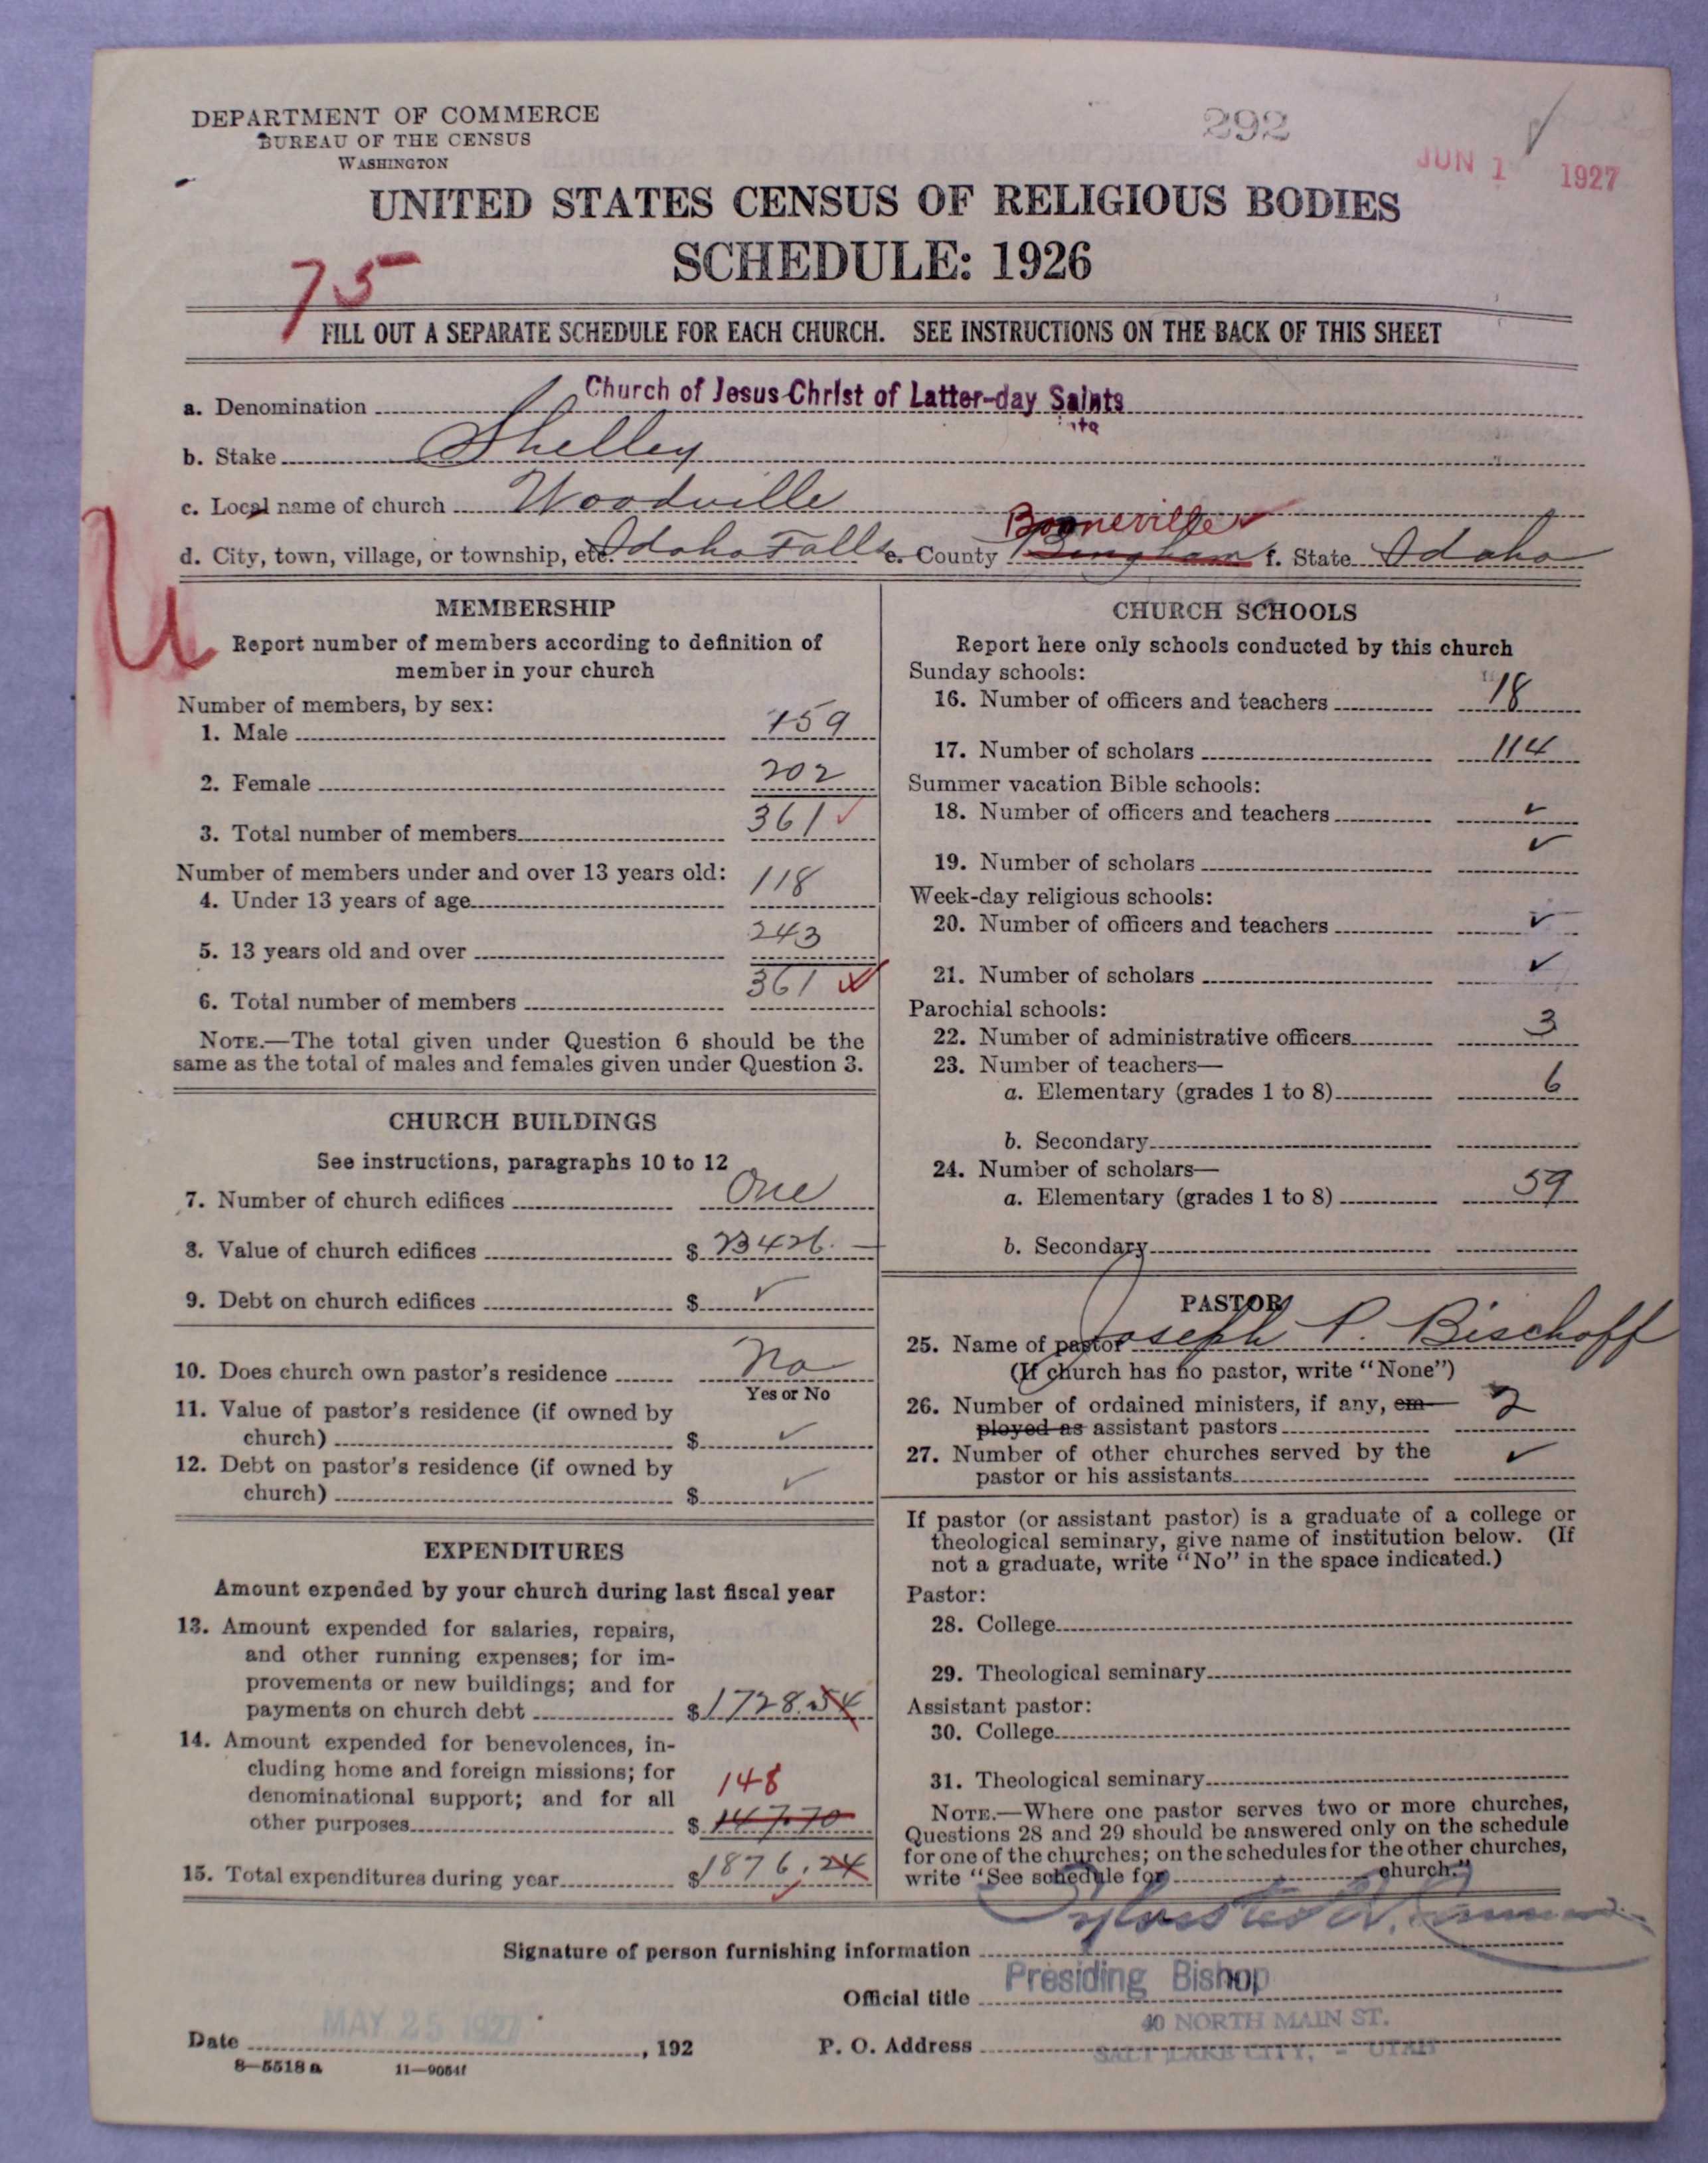 DEPARTMENT OF COMMERCE
BUREAU OF THE CENSUS
WASHINGTON
292
JUN 1 1927
UNITED STATES CENSUS OF RELIGIOUS BODIES
SCHEDULE: 1926
75
FILL OUT A SEPARATE SCHEDULE FOR EACH CHURCH. SEE INSTRUCTIONS ON THE BACK OF THIS SHEET
a. Denomination Church of Jesus Christ of Latter-day Saints
b. Stake Shelley
c. Local name of church Woodville
Booneville
d. City, town, village, or township, etc. Idaho Falls e. County Bingham f. State Idaho
U
MEMBERSHIP
Report number of members according to definition of
member in your church
Number of members, by sex:
1. Male 159
2. Female 202
3. Total number of members 361
Number of members under and over 13 years old:
4. Under 13 years of age 118
5. 13 years old and over 243
6. Total number of members 361
NOTE.—The total given under Question 6 should be the
same as the total of males and females given under Question 3.
CHURCH BUILDINGS
See instructions, paragraphs 10 to 12
7. Number of church edifices One
8. Value of church edifices $ 23426.—
9. Debt on church edifices $ ✓
10. Does church own pastor's residence No
Yes or No
11. Value of pastor's residence (if owned by
church) $ ✓
12. Debt on pastor's residence (if owned by
church) $ ✓
EXPENDITURES
Amount expended by your church during last fiscal year
13. Amount expended for salaries, repairs,
and other running expenses; for im-
provements or new buildings; and for
payments on church debt $ 1728.54
14. Amount expended for benevolences, in-
cluding home and foreign missions; for
denominational support; and for all 148
other purposes $ 147.70
15. Total expenditures during year $ 1876.24
CHURCH SCHOOLS
Report here only schools conducted by this church
Sunday schools:
16. Number of officers and teachers 18
17. Number of scholars 114
Summer vacation Bible schools:
18. Number of officers and teachers ✓
19. Number of scholars ✓
Week-day religious schools:
20. Number of officers and teachers ✓
21. Number of scholars ✓
Parochial schools:
22. Number of administrative officers 3
23. Number of teachers—
a. Elementary (grades 1 to 8) 6
b. Secondary
24. Number of scholars—
a. Elementary (grades 1 to 8) 59
b. Secondary
PASTOR
25. Name of pastor Joseph P. Bischoff
(If church has no pastor, write "None")
26. Number of ordained ministers, if any, em-
ployed as assistant pastors 2
27. Number of other churches served by the
pastor or his assistants ✓
If pastor (or assistant pastor) is a graduate of a college or
theological seminary, give name of institution below. (If
not a graduate, write "No" in the space indicated.)
Pastor:
28. College
29. Theological seminary
Assistant pastor:
30. College
31. Theological seminary
NOTE.—Where one pastor serves two or more churches,
Questions 28 and 29 should be answered only on the schedule
for one of the churches; on the schedules for the other churches,
write "See schedule for church."
Signature of person furnishing information Sylvester Q. Cannon
Official title Presiding Bishop
40 NORTH MAIN ST.
Date MAY 25 1927, 192 P. O. Address SALT LAKE CITY, - UTAH
8—5518 a 11—9054f